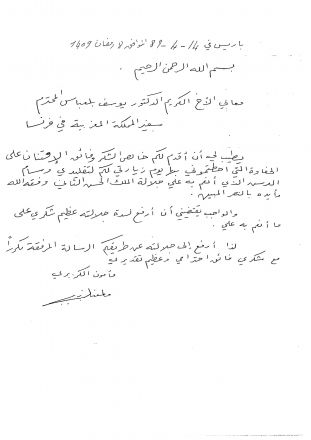 باريس في 14-4-89 الموافق 8 رمضان 1409
بسم الله الرحمن الرحيم .
معالي الأخ الكريم الدكتور يوسف بلعباس المحترم
سفير المملكة المغربية في فرنسا
يطيب لي أن أقدم لكم خالص الشكر وفائق الامتنان على
الحفاوة التي أحطتموني بها يوم زيارتي لكم لتقليدي وسام
الذي أنعم به علي جلالة الملك الحسن الثاني وفقه الله
وأيده بالنصر المبين .
والواجب يقتضيني أن أرفع لسدة جلالته عظيم شكري على
ما أنعم به علي .
لذا أرفع إلى جلالته عن طريقكم الرسالة المرفقة مكرراً
مع شكري فائق احترامي وعظيم تقديري
مأمون الكزبري